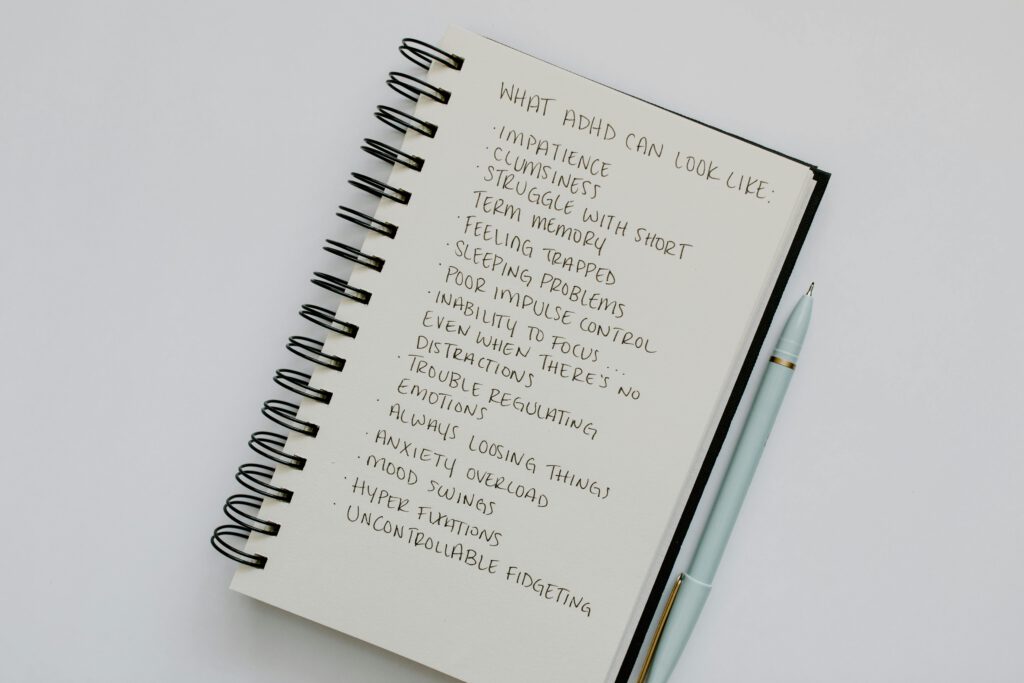 WHAT ADHD CAN LOOK LIKE:
· IMPATIENCE
· CLUMSINESS
· STRUGGLE WITH SHORT
TERM MEMORY
· FEELING TRAPPED
· SLEEPING PROBLEMS
· POOR IMPULSE CONTROL
· INABILITY TO FOCUS....
EVEN WHEN THERE'S NO
DISTRACTIONS
· TROUBLE REGULATING
EMOTIONS
· ALWAYS LOOSING THINGS
· ANXIETY OVERLOAD
· MOOD SWINGS
· HYPER FIXATIONS
· UNCONTROLLABLE FIDGETING